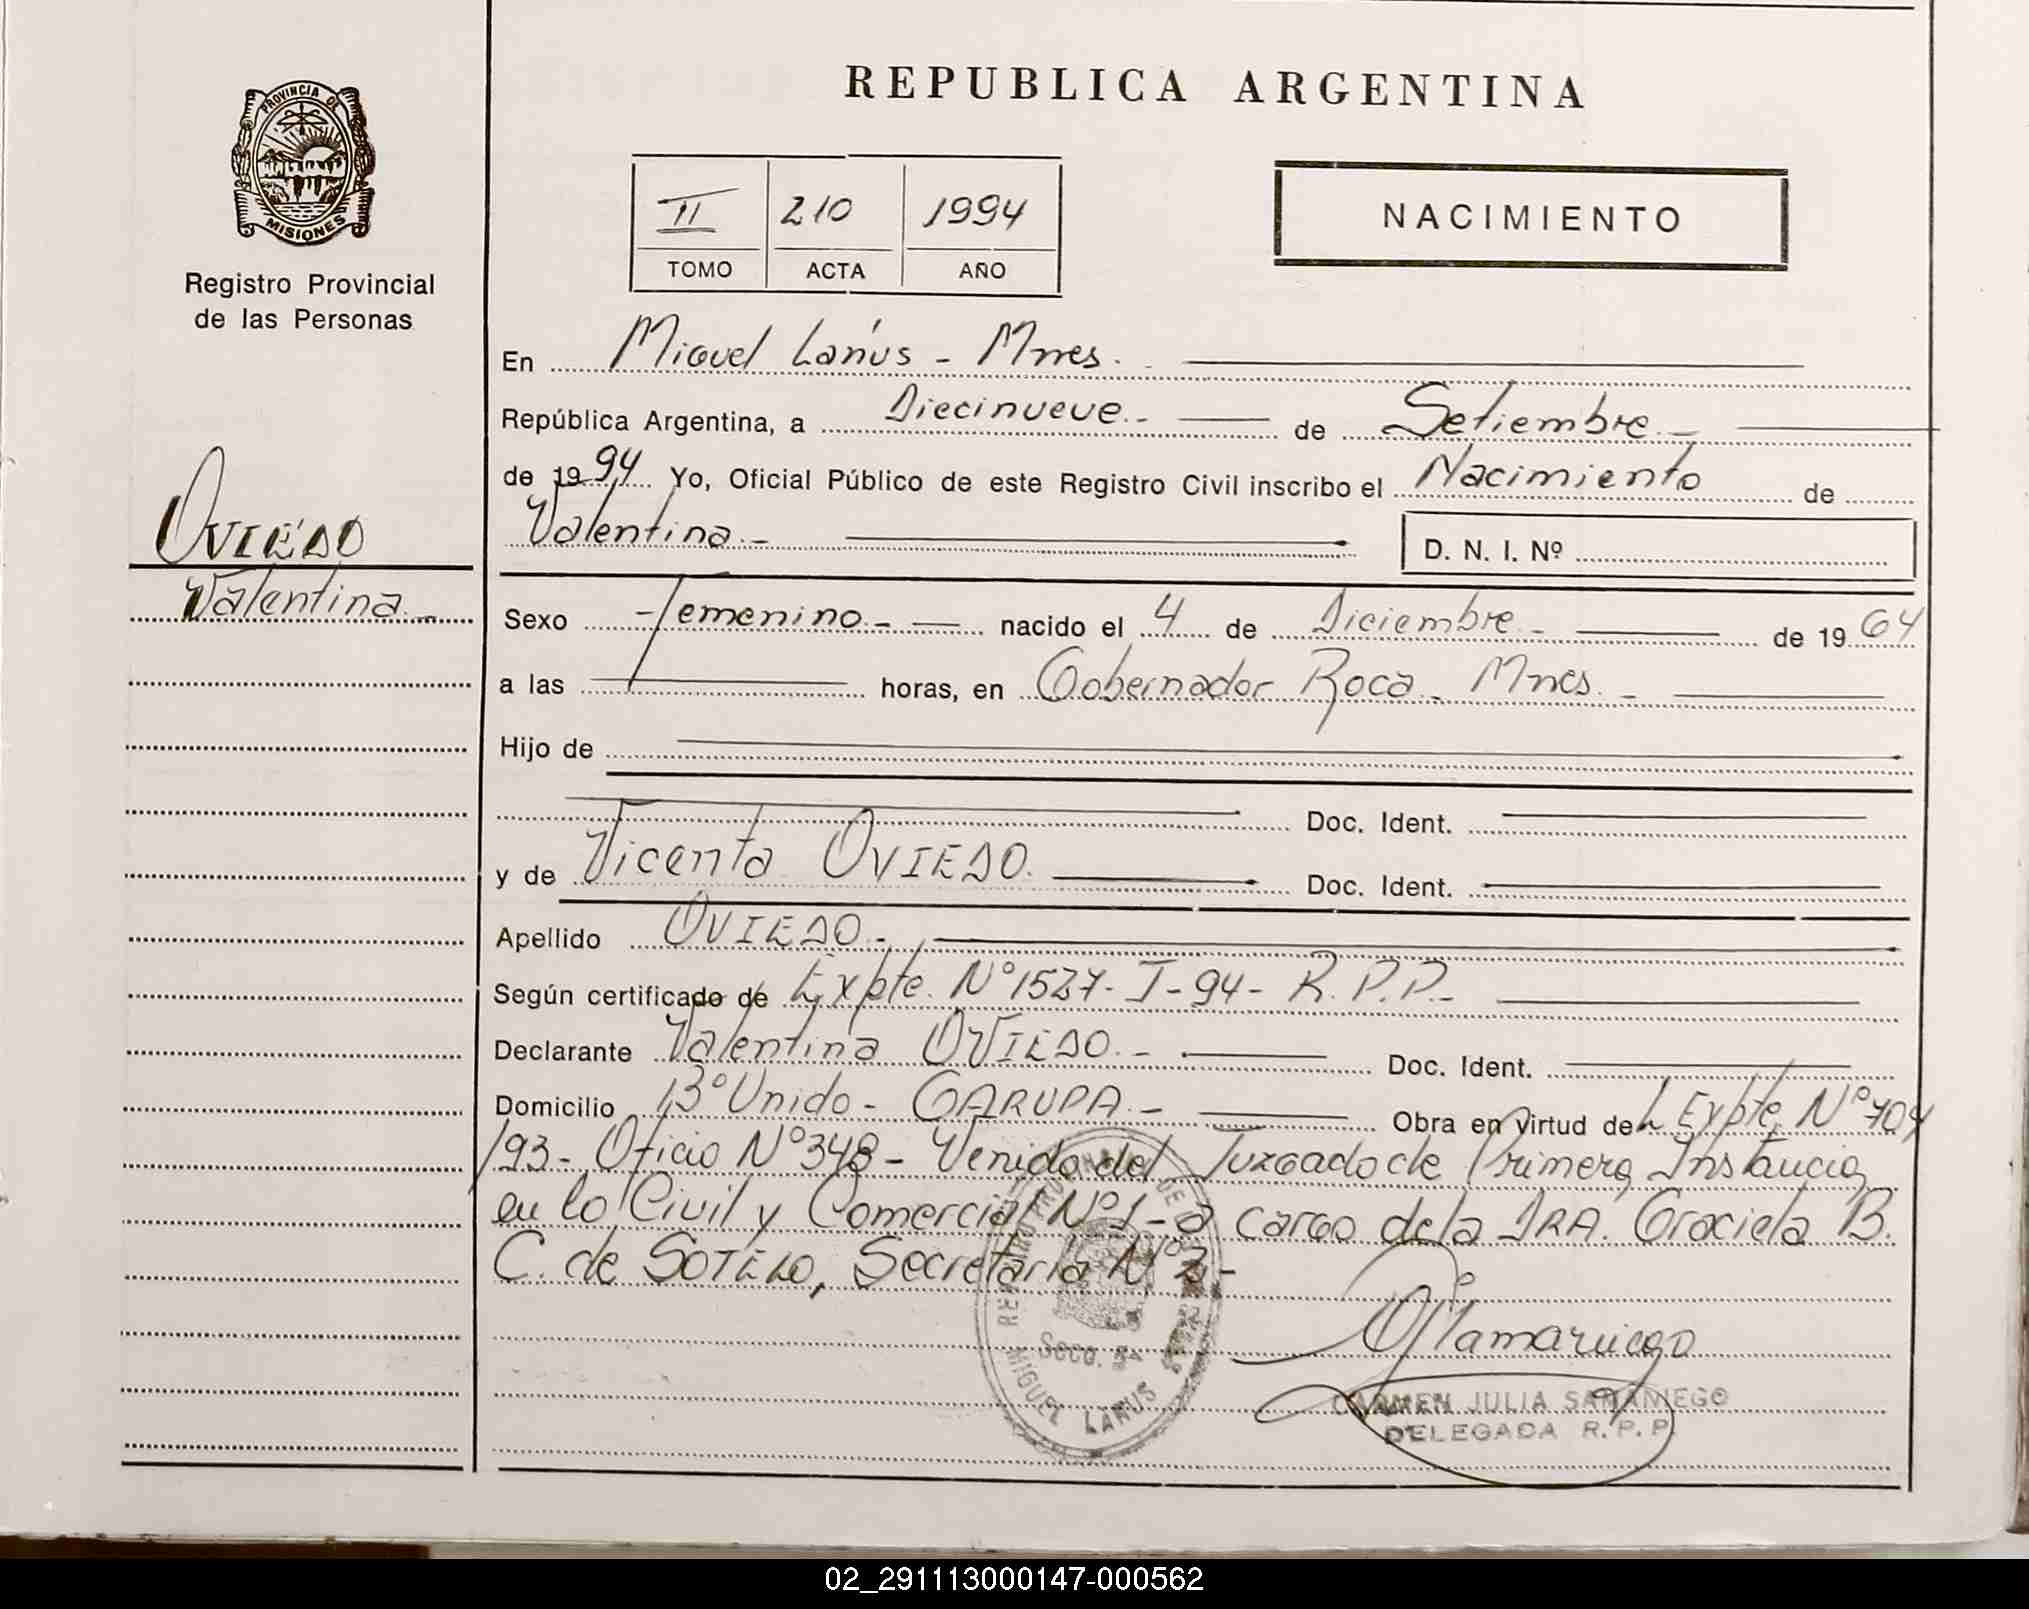 REPUBLICA ARGENTINA
PROVINCIA DE
MISIONES
Registro Provincial
de las Personas
II 210 1994
TOMO ACTA AÑO
NACIMIENTO
OVIEDO
Valentina.-
En Miguel Lanús - Mnes.
República Argentina, a Diecinueve.- de Setiembre.-
de 1994 Yo, Oficial Público de este Registro Civil inscribo el Nacimiento de
Valentina.-
D. N. I. Nº
Sexo femenino.- nacido el 4 de Diciembre.- de 1964
a las horas, en Gobernador Roca - Mnes.-
Hijo de
Doc. Ident.
y de Vicenta OVIEDO. Doc. Ident.
Apellido OVIEDO.-
Según certificado de Expte. Nº 1527- I-94- R.P.P.-
Declarante Valentina OVIEDO.- Doc. Ident.
Domicilio Bº Unido - GARUPA.- Obra en Virtud del Expte, Nº 704
/93- Oficio Nº 348 - Venido del Juzgado de Primera Instancia
en lo Civil y Comercial Nº 1 - a cargo de la DRA. Graciela B.
C. de SOTELO, Secretaria Nº 2-
Secc. 5ª
MIGUEL LANUS
CARMEN JULIA SAMANIEGO
DELEGADA R. P. P.
02_291113000147-000562